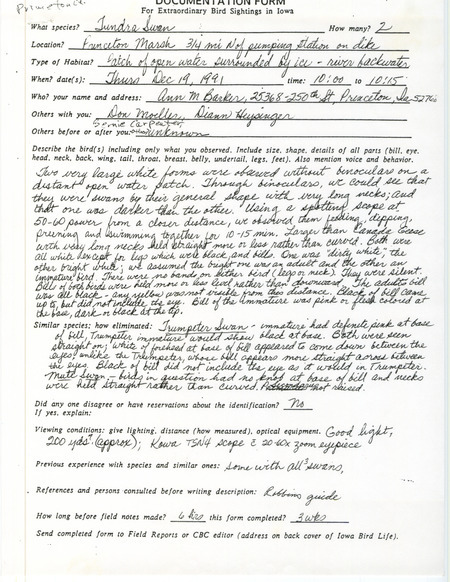 Princeton
DOCUMENTATION FORM
For Extraordinary Bird Sightings in Iowa
What species? Tundra Swan How many? 2
Location? Princeton Marsh 3/4 mi N of pumping station on dike
Type of Habitat? Patch of open water surrounded by ice - river backwater
When? date(s): Thurs Dec 19, 1991 time: 10:00 to 10:15
Who? your name and address: Ann M Barker, 25368-250th St, Princeton, Ia 52768
Others with you: Don Moeller, Diann Heysinger
Others before or after you: unknown
Describe the bird(s) including only what you observed. Include size, shape, details of all parts (bill, eye,
head, neck, back, wing, tail, throat, breast, belly, undertail, legs, feet). Also mention voice and behavior.
Two very large white forms were observed without binoculars on a
distant open water patch. Through binoculars, we could see that
they were swans by their general shape with very long necks; and
that one was darker than the other. Using a spotting scope at
50-60 power from a closer distance, we observed them feeding, dipping,
preening and swimming together for 10-15 min. Larger than Canada Geese
with very long necks held straight more or less rather than curved. Both were
all white except for legs which were black and bills. One was "dirty white", the
other bright white; we assumed the bright one was an adult and the other an
immature bird. There were no bands on either bird (leg or neck). They were silent.
Bills of both birds were held more or less level rather than downward. The adult's bill
was all black - any yellow was not visible from this distance. Black of bill came
up to, but did not include the eye. Bill of the immature was pink or flesh colored at
the base, dark or black at the tip.
Similar species; how eliminated: Trumpeter Swan - immature had definite pink at base
of bill, Trumpeter immature would show black at base. Both were seen
straight on; white of forehead at base of bill appeared to come down between the
eyes unlike the Trumpeter, whose bill appears more straight across between
the eyes. Black of bill did not include the eye as it would in Trumpeter.
Mute Swan - birds in question had no knob at base of bill and necks
were held straight rather than curved. not raised.
Did any one disagree or have reservations about the identification? No
If yes, explain:
Viewing conditions: give lighting, distance (how measured), optical equipment. Good light,
200 yds? (approx); Kowa TSN4 scope & 20-60x zoom eyepiece
Previous experience with species and similar ones: Some with all 3 swans,
References and persons consulted before writing description: Robbins guide
How long before field notes made? 6 hrs this form completed? 3 wks
Send completed form to Field Reports or CBC editor (address on back cover of Iowa Bird Life).